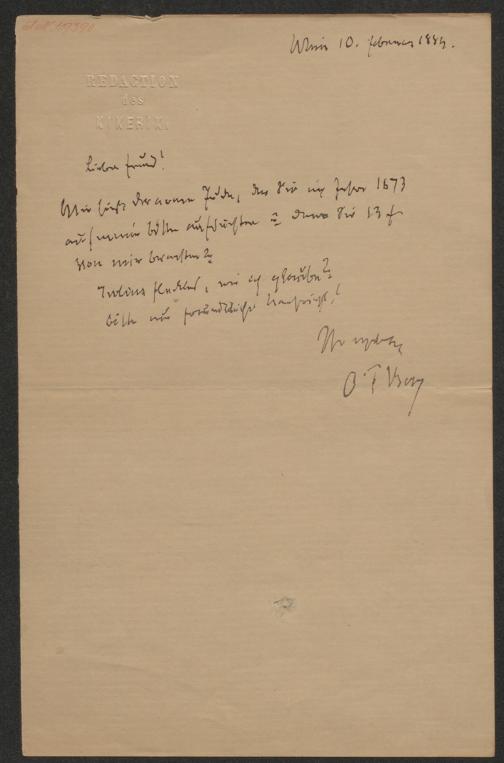 Wien 10. Februar 1884.
REDACTION
des
KIKERIKI
Lieber Freund!
Wie hieß der arme Jude, den Sie im Jahre 1873
auf meine Bitte aufsuchten & dem Sie 13 f
von mir brachten?
Julius , wie ich glaube?
Bitte um freundliche Nachricht!
Ihr ergebener
O F Berg